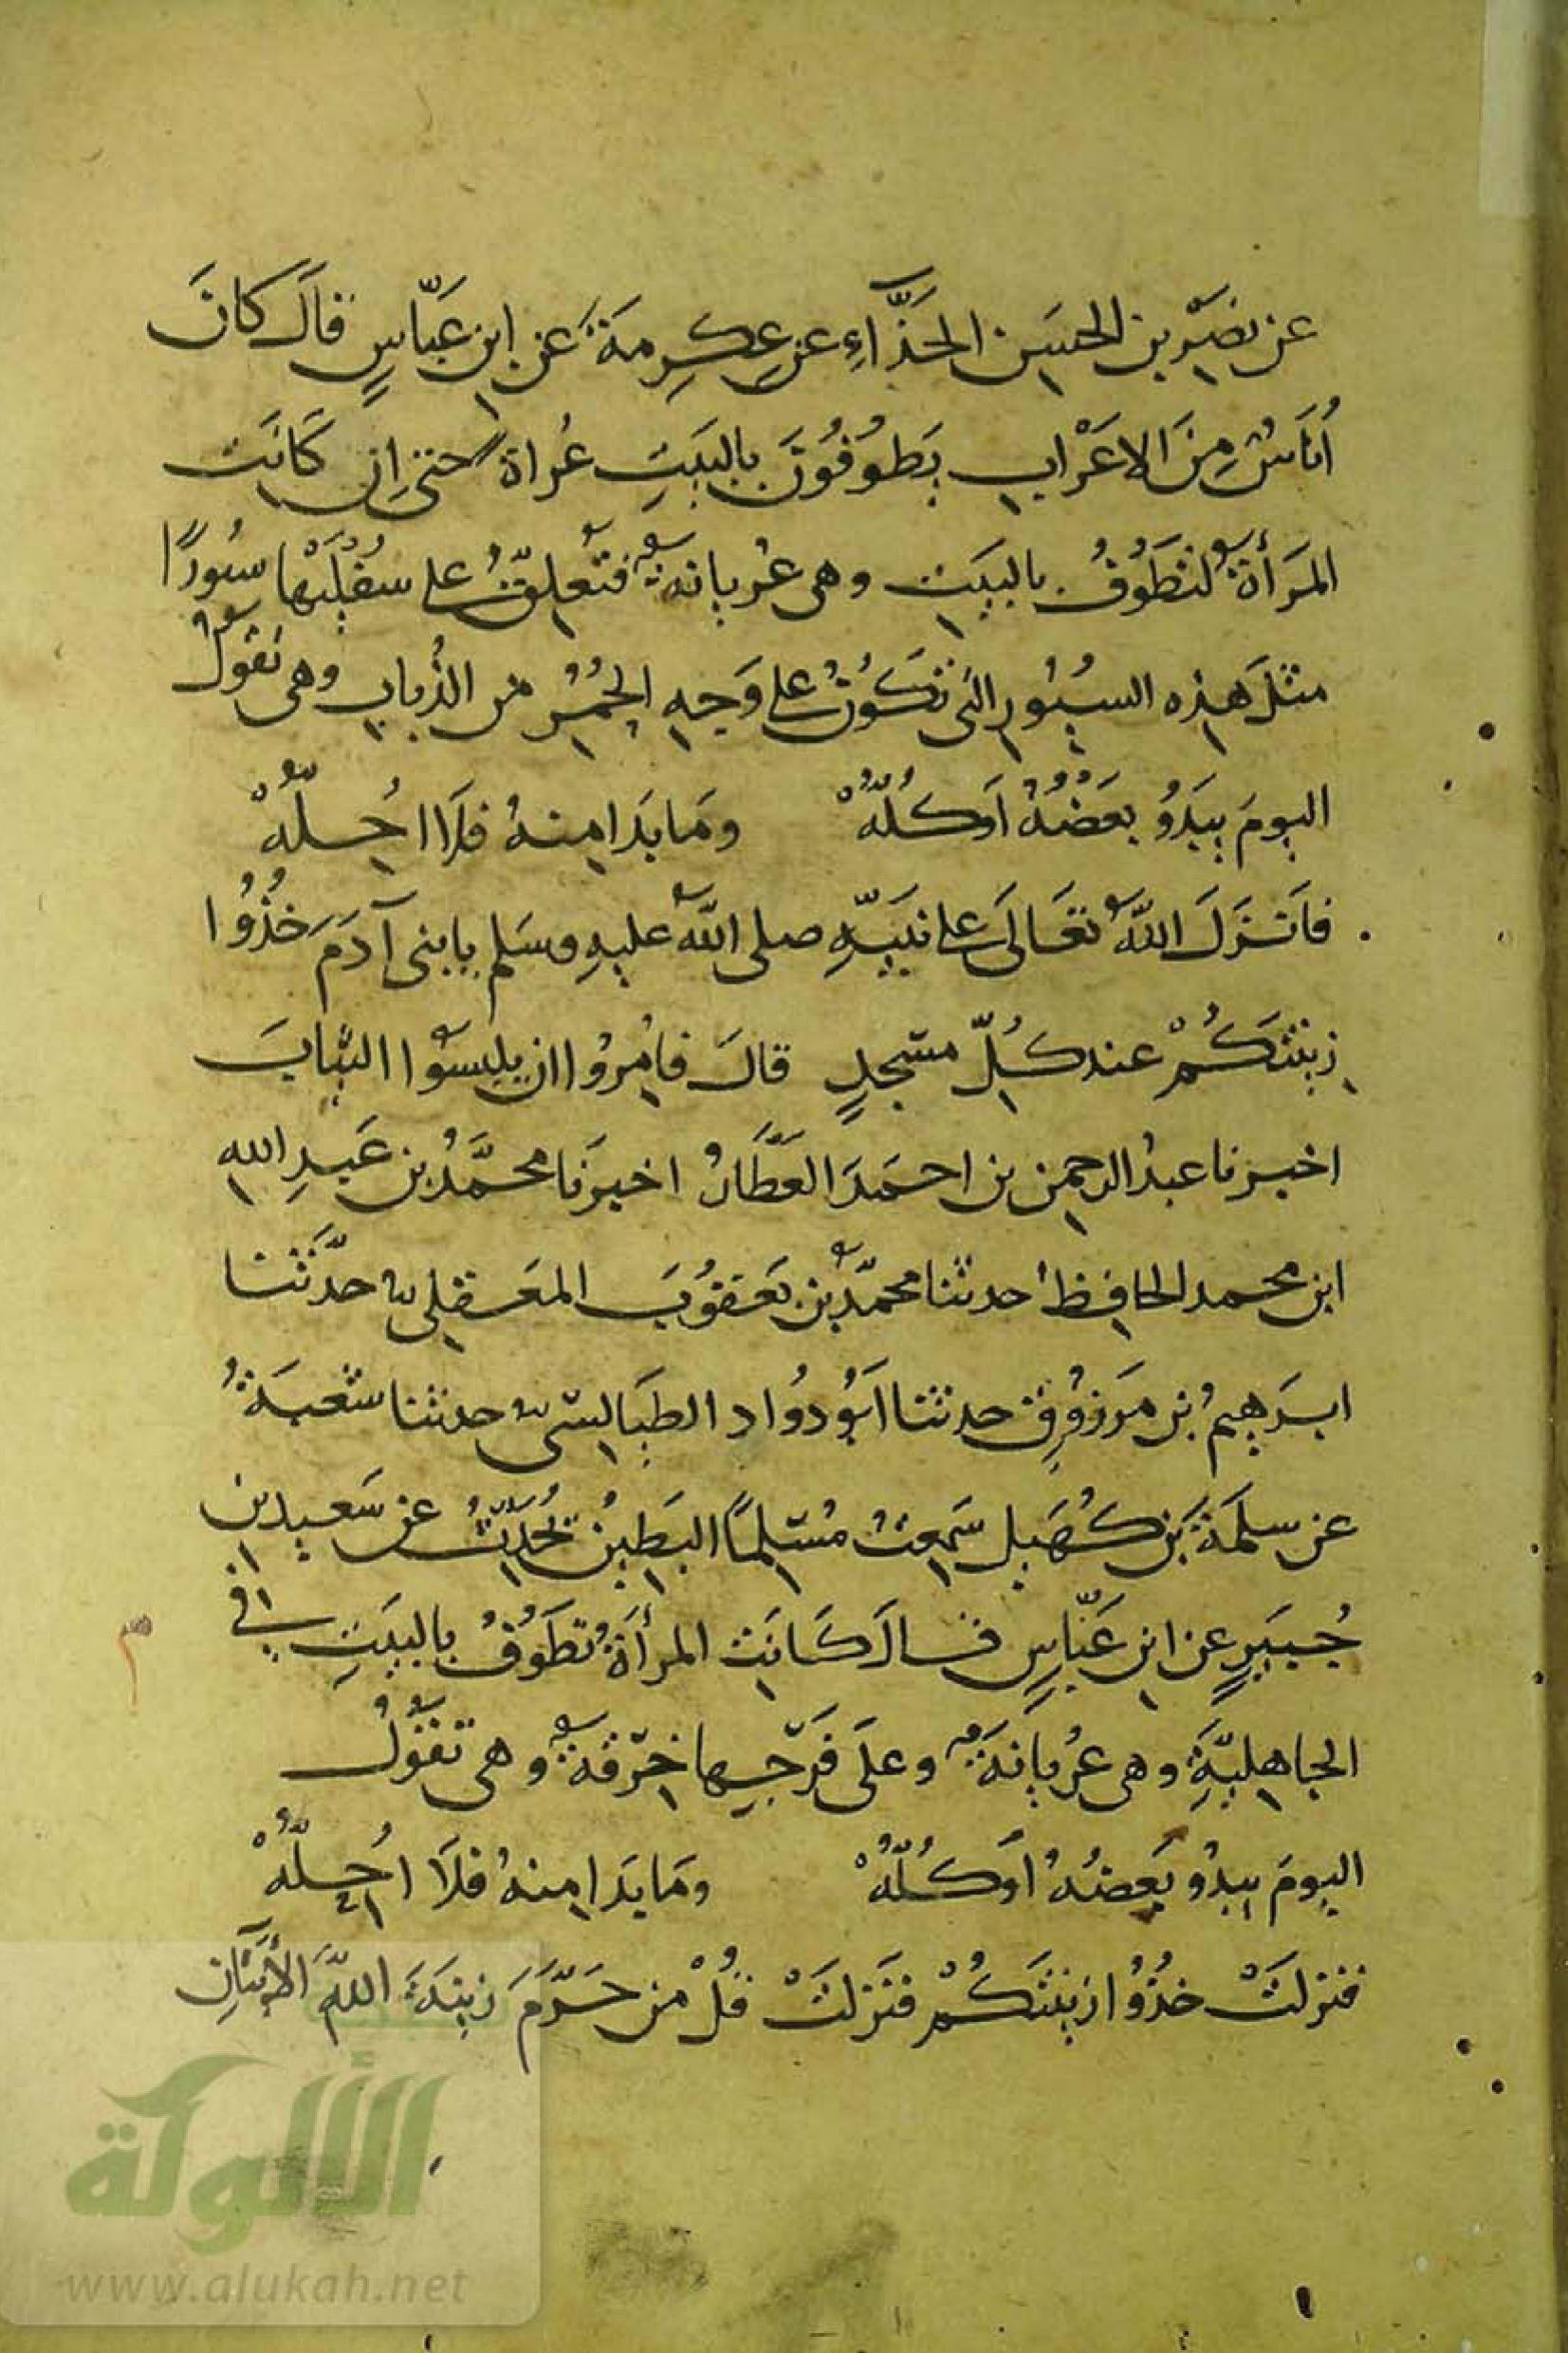 عن نصير بن الحسن الحذّاءِ عن عِكرِمَةَ عن ابن عبّاسٍ قالَ كانَ
أُناسٌ مِنَ الاعْرابِ يَطُوفُونَ بالبَيتِ عُراةً حتى اِن كَانَت
المَرأةُ لتطَوُفُ بالبَيتِ وهى عُريانةٌ فتُعلِّقُ على سُفْلَيْها سُيورًا
مثلَ هذه السيُورِ التى تكُونُ على وَجهِ الحُمُرِ من الذُبابِ وهى تقولُ
اليومَ يبدُو بعضُهُ اَوكُلُّهْ وَمَا بَدَا منهُ فلَا احِلُّهْ
فاَنزَلَ اللهُ تعَالَى على نبيّهِ صلى اللهُ عليهِ وسَلم يا بنى آدَمَ خُذُوا
زينتكُمْ عند كُلِّ مسْجدٍ قالَ فاُمِرُوا ان يلبسُوا الثيابَ
اخبرنا عبدُ الرحمن بن احمَدَ العَطَّارُ اخبرَنا محمَّدُ بن عَبدِ اللهِ
ابن محمد الحافِظُ حدثنا محمّدُ بن يَعقوُبَ المعَقِلى حدَّثنا
ابرَهِيمُ بن مَرزُوقٍ حدثنا ابُو دُواد الطيَالِسى حدثنا شعبَةُ
عن سلمَةَ بن كُهَيل سَمِعتُ مُسْلِمًا البَطِينُ يُحدِّثُ عن سَعيدِ بن
جُبَيرٍ عن ابن عبَّاسٍ قالَ كَانَت المرأةُ تطَوُفُ بالبيَتِ فى
الجاهليَّةِ وهى عُريانَةٌ وعلَى فَرْجِها خِرْقةٌ وهى تقُولُ
اليومَ يبدُو بَعضُهُ اَوكُلُّهْ وَمَا بدَا منهُ فلَا اُحِلُّهْ
فنزلَتْ خذُوُا زينتكُمْ فنَزلَتْ قُلْ من حَرَّمَ زينَةَ اللهِ الأيتَانِ
الألوكة
www.alukah.net